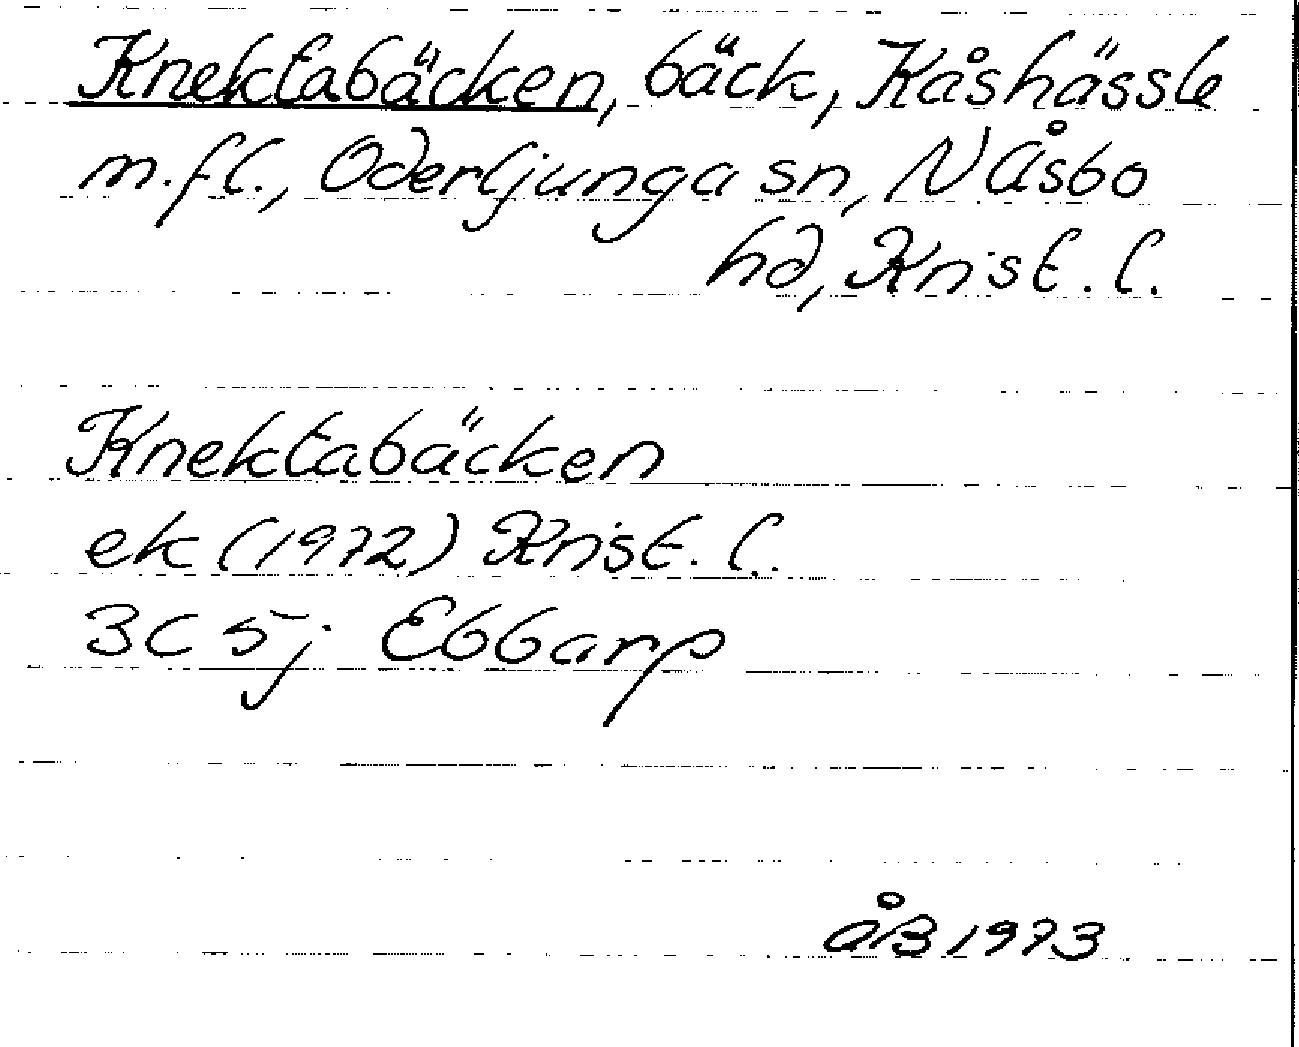 Knektabäcken, bäck, Kåshässle
m.fl., Oderljunga sn, N Åsbo
hd, Krist. l.
Knektabäcken
ek (1972) Krist. l.
3C 5j Ebbarp
åB 1973